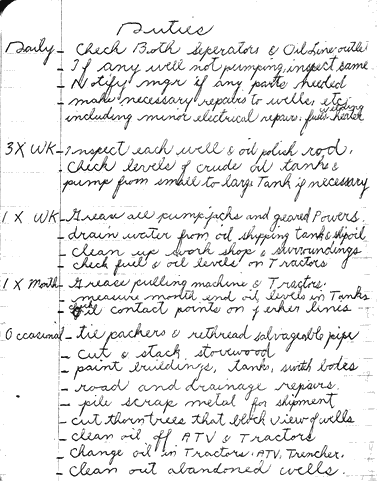 Duties
Daily - Check Both seperators & Oil Line outlet
- If any well not pumping, inspect same
- Notify mgr if any parts needed
- make necessary repairs to wells, etc,
including minor electrical repair, welding heater
3 X WK - Inspect each well & oil polish rod.
- Check levels of crude oil tanks &
pump from small to large Tank if necessary
1 X WK - Grease all pump jacks and geared Powers.
- drain water from oil shipping tank & slip oil
- clean up work shop & surroundings
- check fuel & oil levels on Tractors
1 X Month - Grease pulling machine & Tractors.
- measure month end oil levels in Tanks
- oil contact points on jerker lines
Occasional - tie packers & rethread salvageable pipe
- cut & stack stovewood
- paint buildings, tanks, switch boxes
- road and drainage repairs.
- pile scrap metal for shipment
- cut thorntrees that block view of wells
- clean oil off ATV & Tractors
- Change oil in Tractors, ATV, Trencher,
- clean out abandoned wells.